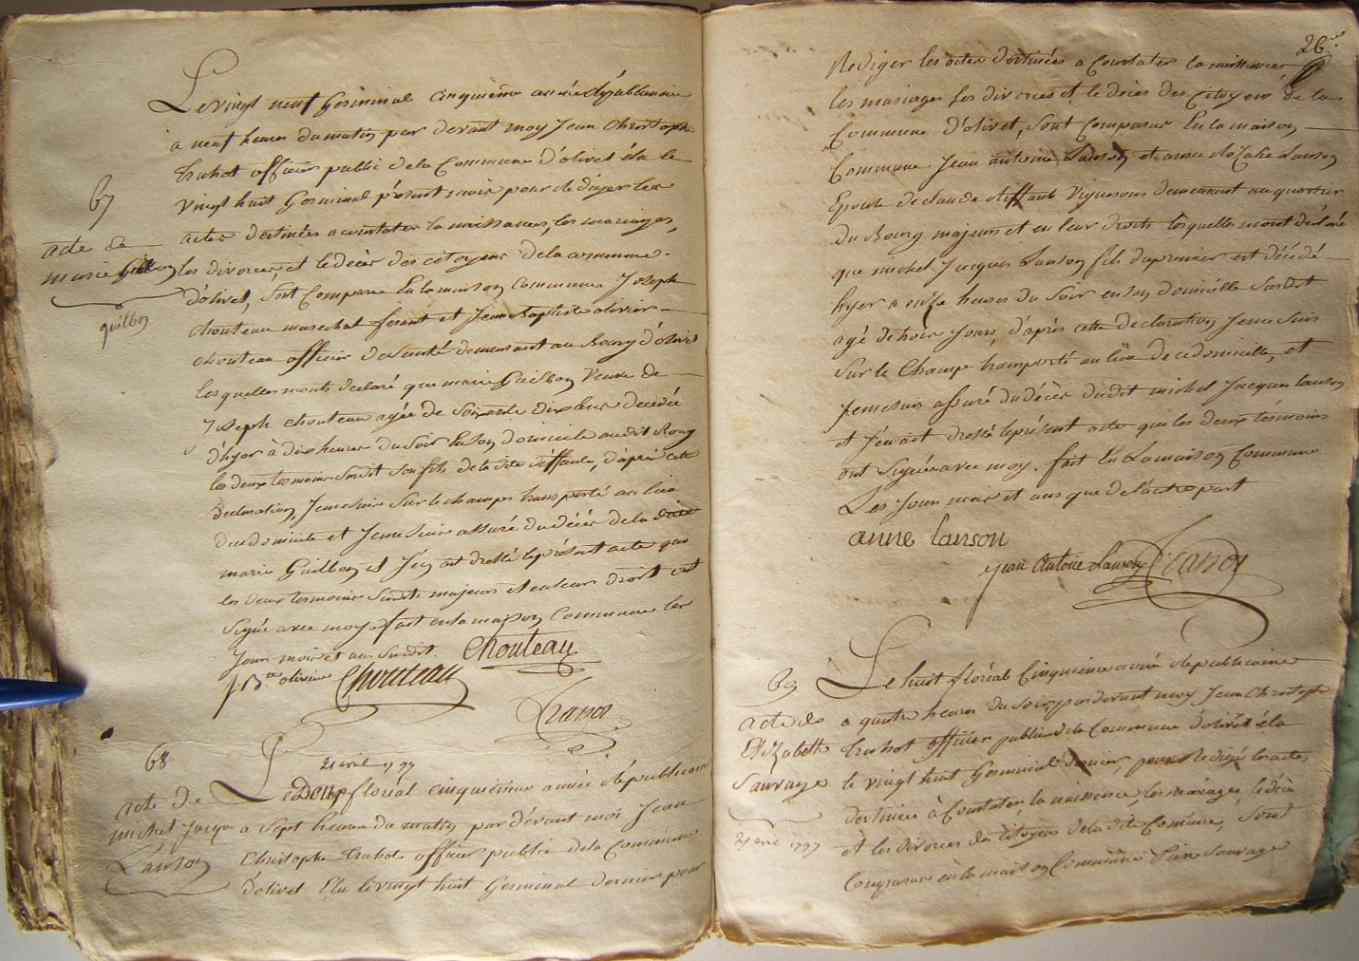 Le vingt neuf Germinal cinquieme année Républicaine
à neuf heures du matin par devant moy Jean Christophe
Truhot officier public de la Commune d'olivet élu le
vingt huit Germinal présent mois pour rediger les
67
actes destinées a constater la naissances, les mariages,
acte de
marie Guilbon
guilbon
les divorces, et le décès des citoyens de la commune
d'olivet, sont comparus En la maison commune Joseph
chouteau marechal ferant et Jean Baptiste olivier
chouteau officier de santé demeurant au Bourg d'olivet
lesquelles m'ont declaré que marie Guilbon Veuve de
Joseph chouteau agée de soixante dix huit decedée
d'hyer à dix heures du soir En son domicile audit Bourg
les deux temoins susdit son fils de la dite deffunte, d'après cette
declaration, Je me suis sur le champs transporté au lieu
du domicile et Je me suis assuré du décès de la ditte
marie Guilbon et J'ey ait dressé le présent acte que
les deux temoins susdits majeurs et en leur droit ont
signé avec moy fait en la maison commune les
Jour mois et an susdit Chouteau
J B.te olivier Chouteau
Trahot
68
21 avril 1797
acte de
michel Jacque
Lanson
Le Douze floréal cinquieme année républicaine
a sept heures du matin par dévant moi Jean
Christophe Truhot officier public de la Commune
d'olivet Elu le vingt huit Germinal dernier pour
26
Rediger les actes destinées a Constater la naissances
les mariages les divorces et le décès des Citoyens de la
Commune d'olivet, sont comparus En la maison
Commune Jean antoine Lanson et anne Lanson
Epouse de claude vignerons demeurant au quartier
du Bourg majeurs et en leur droits lesquelle mont déclaré
que michel Jacques Lanson fils du premier est décédé
hyer a onze heures du soir en son domicille susdit
agé de huit Jours, d'après cette declaration Je me suis
sur le Champs transporté au lieu de ce domicille, et
Je me suis assuré du décès dudit michel Jacques lanson
et J'en ait dressé le présent acte que les deux témoins
ont signés avec moy. fait En La maison Commune
Les Jour, mois et ans que de l'autre part
anne lanson
Jean Antoine Lanson
69
acte de
Elizabeth
Sauvage
27 avril 1797
Le huit floréal Cinquieme année Republicaine
a quatre heures du soir par devant moy Jean Christophe
Truhot officier public de la Commune d'olivet élu
le vingt huit Germinal dernier, pour Redigé les actes
destinées à Constater la naissance, les mariages, le décès
et les divorces des Citoyens de la dite Commune, sont
Comparus en la maison Commune Sauvage